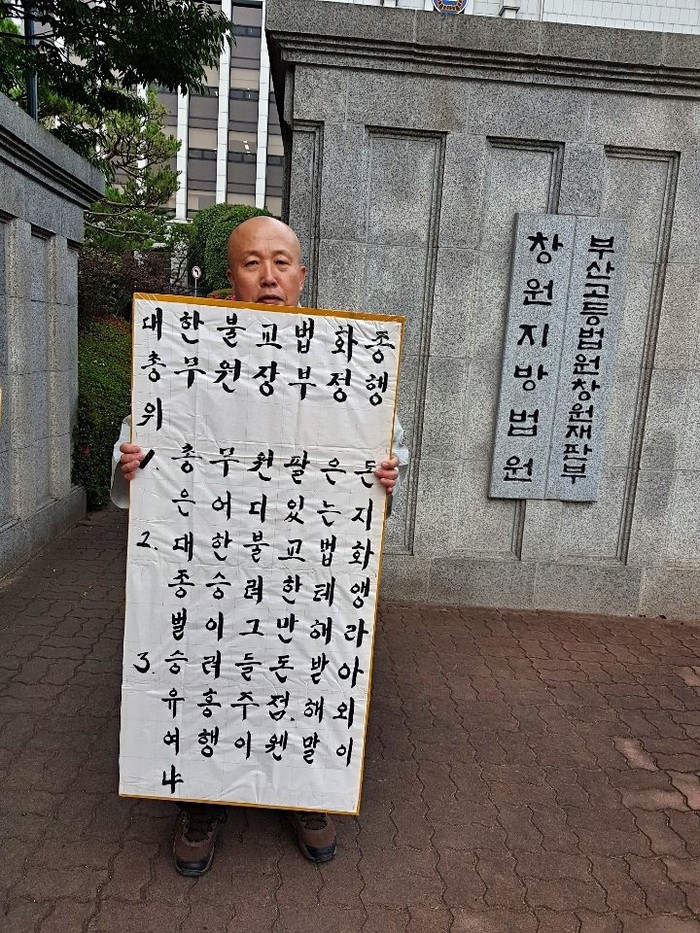 대한불교법화종
총무원장부정행
위
1. 총무원팔은돈
은어디있는지
2. 대한불교법화
종승려한테앵
벌이그만해라
3. 승려들돈받아
유흥주점.해외
여행이웬말이
냐
부산고등법원창원재판부
창원지방법원